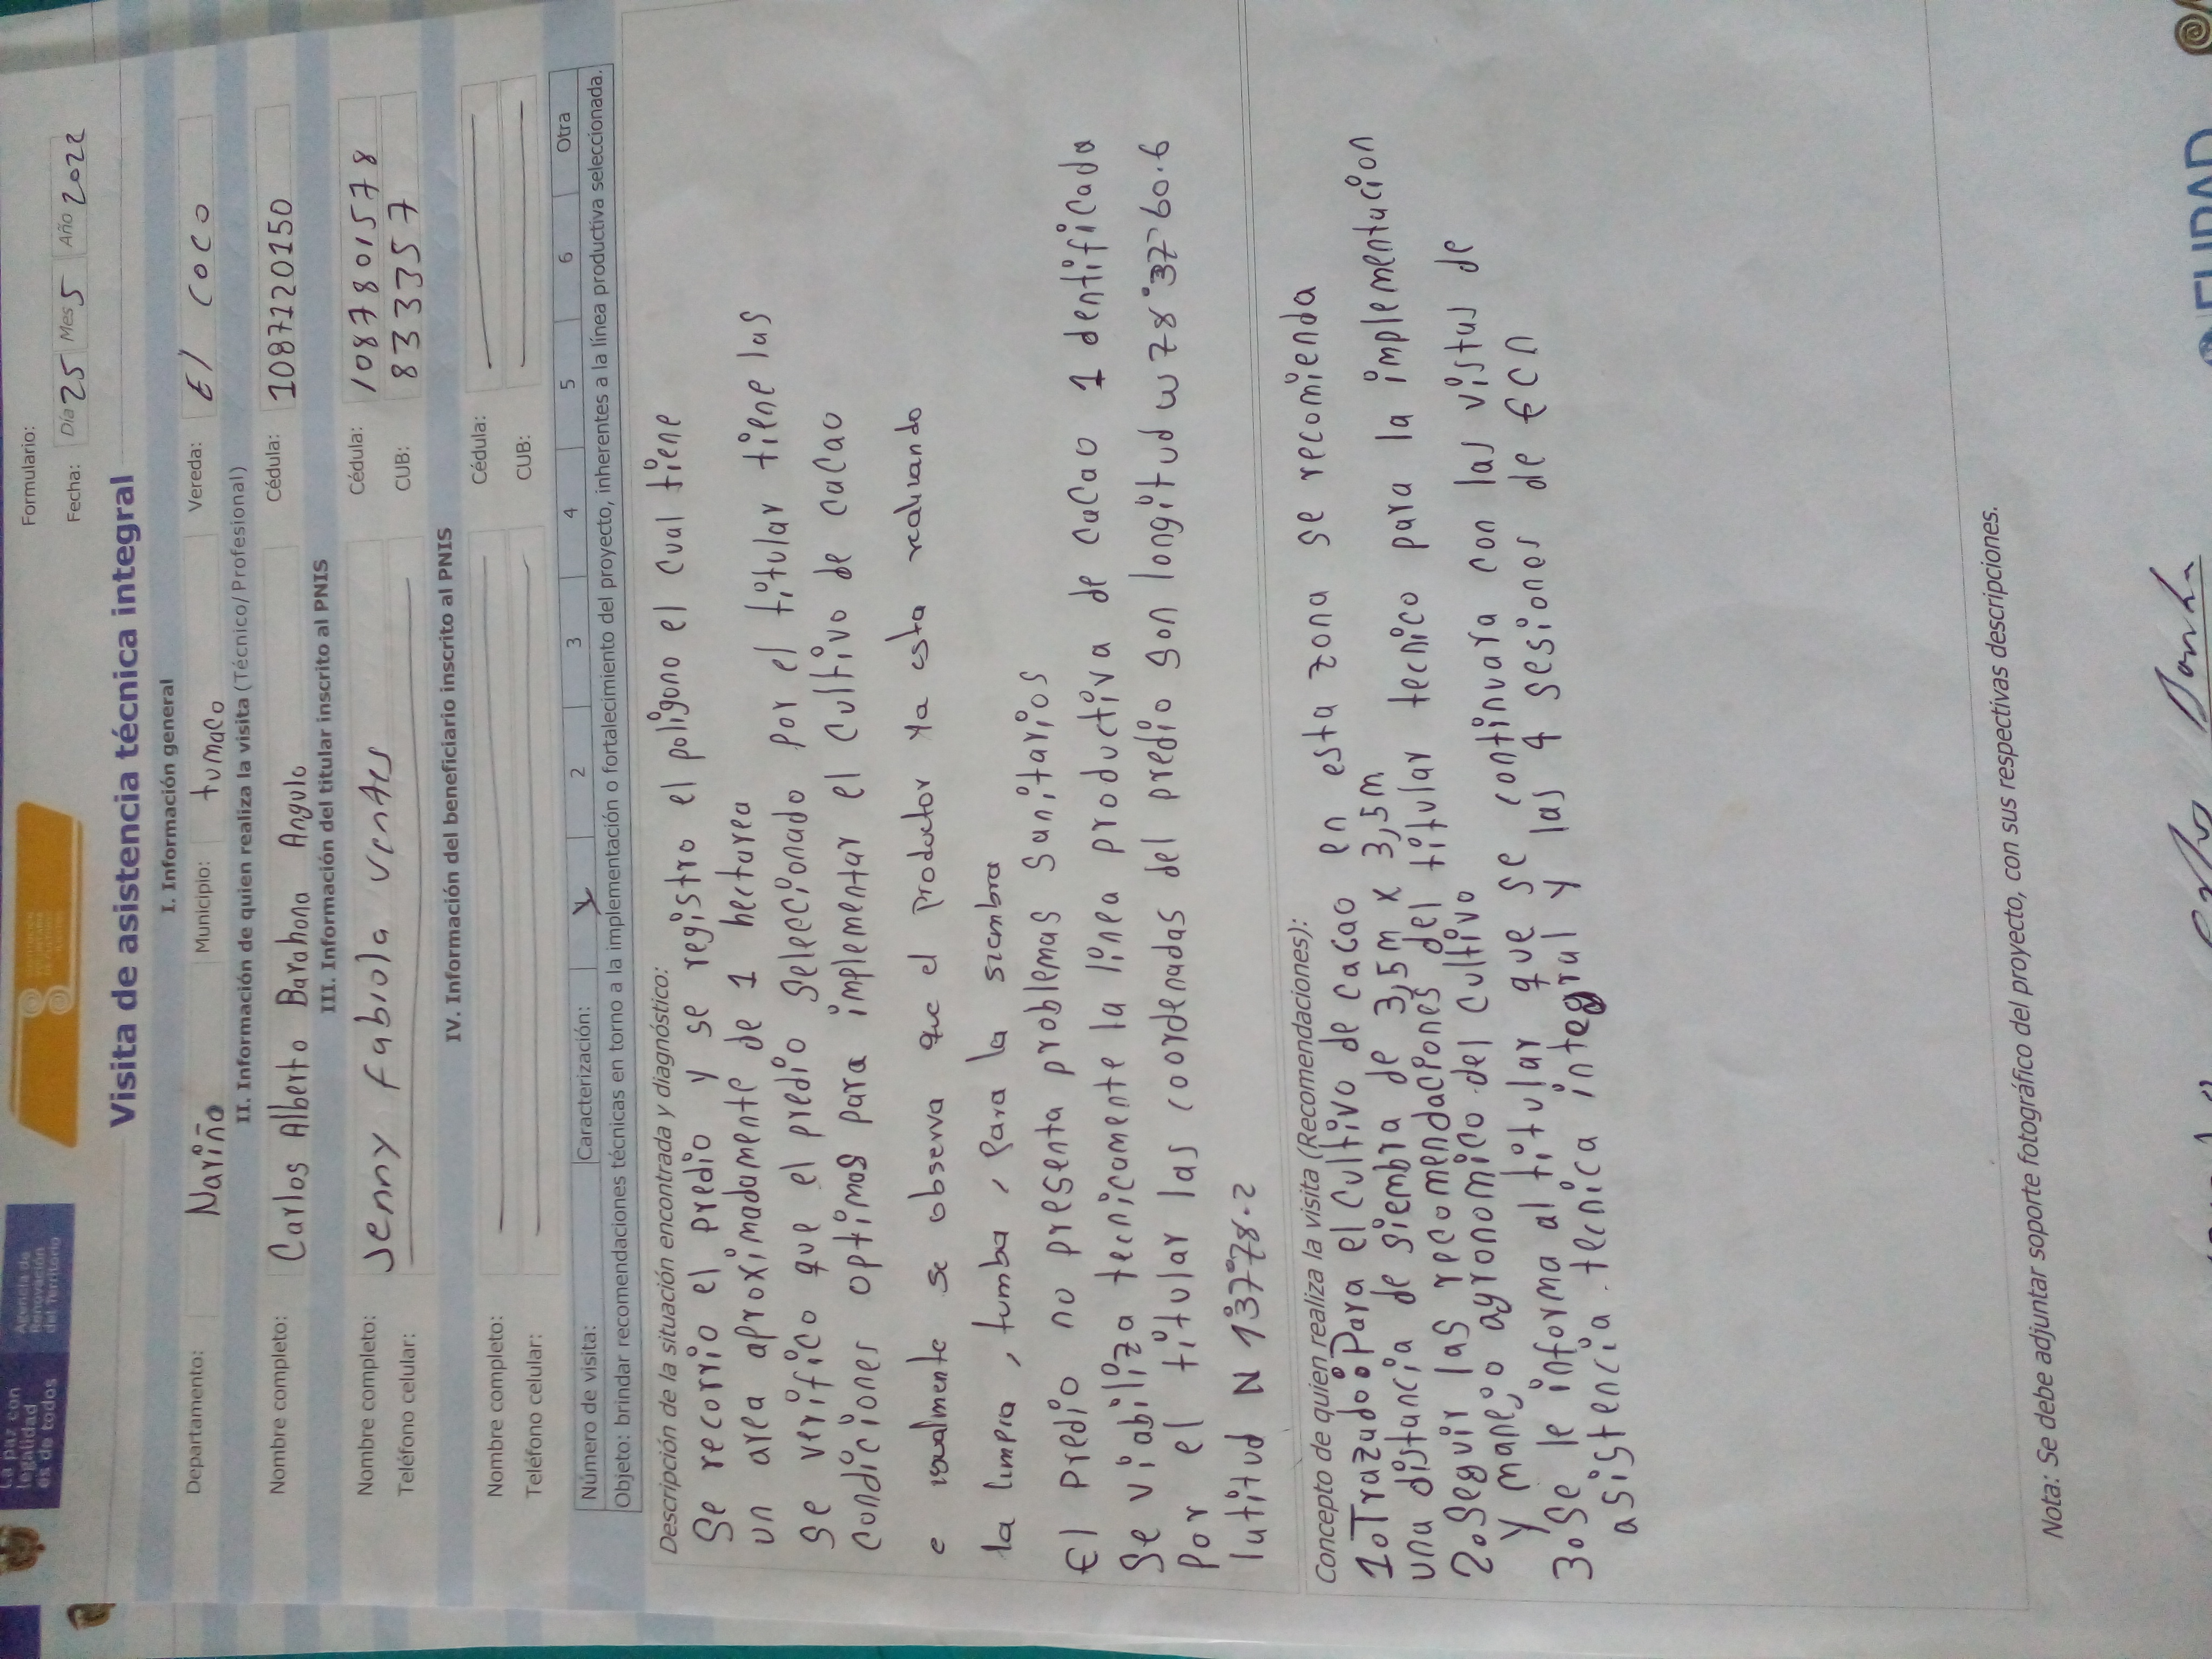 La paz con
legalidad
es de todos
Agencia de
Renovación
del Territorio
Formulario:
Fecha: Día 25 Mes 5 Año 2022
Visita de asistencia técnica integral
I. Información general
Departamento: Nariño Municipio: tumaco Vereda: El coco
II. Información de quien realiza la visita (Técnico/Profesional)
Nombre completo: Carlos Alberto Barahona Angulo Cédula: 1087120150
III. Información del titular inscrito al PNIS
Nombre completo: Jenny Fabiola ventes Cédula: 1087801578
Teléfono celular: CUB: 833357
IV. Información del beneficiario inscrito al PNIS
Nombre completo: Cédula:
Teléfono celular: CUB:
Número de visita: Caracterización: X 2 3 4 5 6 Otra
Objeto: brindar recomendaciones técnicas en torno a la implementación o fortalecimiento del proyecto, inherentes a la línea productiva seleccionada.
Descripción de la situación encontrada y diagnóstico:
Se recorrio el predio y se registro el poligono el cual tiene
un area aproximadamente de 1 hectarea
se verifico que el predio seleccionado por el titular tiene las
condiciones optimas para implementar el cultivo de cacao
e igualmente se observa que el productor ya esta realizando
la limpia, tumba, para la siembra
El predio no presenta problemas sanitarios
Se viabiliza tecnicamente la linea productiva de cacao 1 dentificada
por el titular las coordenadas del predio son longitud w 78°37'60.6
latitud N 1°37'78.2
Concepto de quien realiza la visita (Recomendaciones):
1. Trazado: Para el cultivo de cacao en esta zona se recomienda
una distancia de siembra de 3,5m x 3,5m
2. Seguir las recomendaciones del titular tecnico para la implementacion
y manejo agronomico del cultivo
3. Se le informa al titular que se continuara con las vistas de
asistencia tecnica integral y las 4 sesiones de ECN
Nota: Se debe adjuntar soporte fotográfico del proyecto, con sus respectivas descripciones.